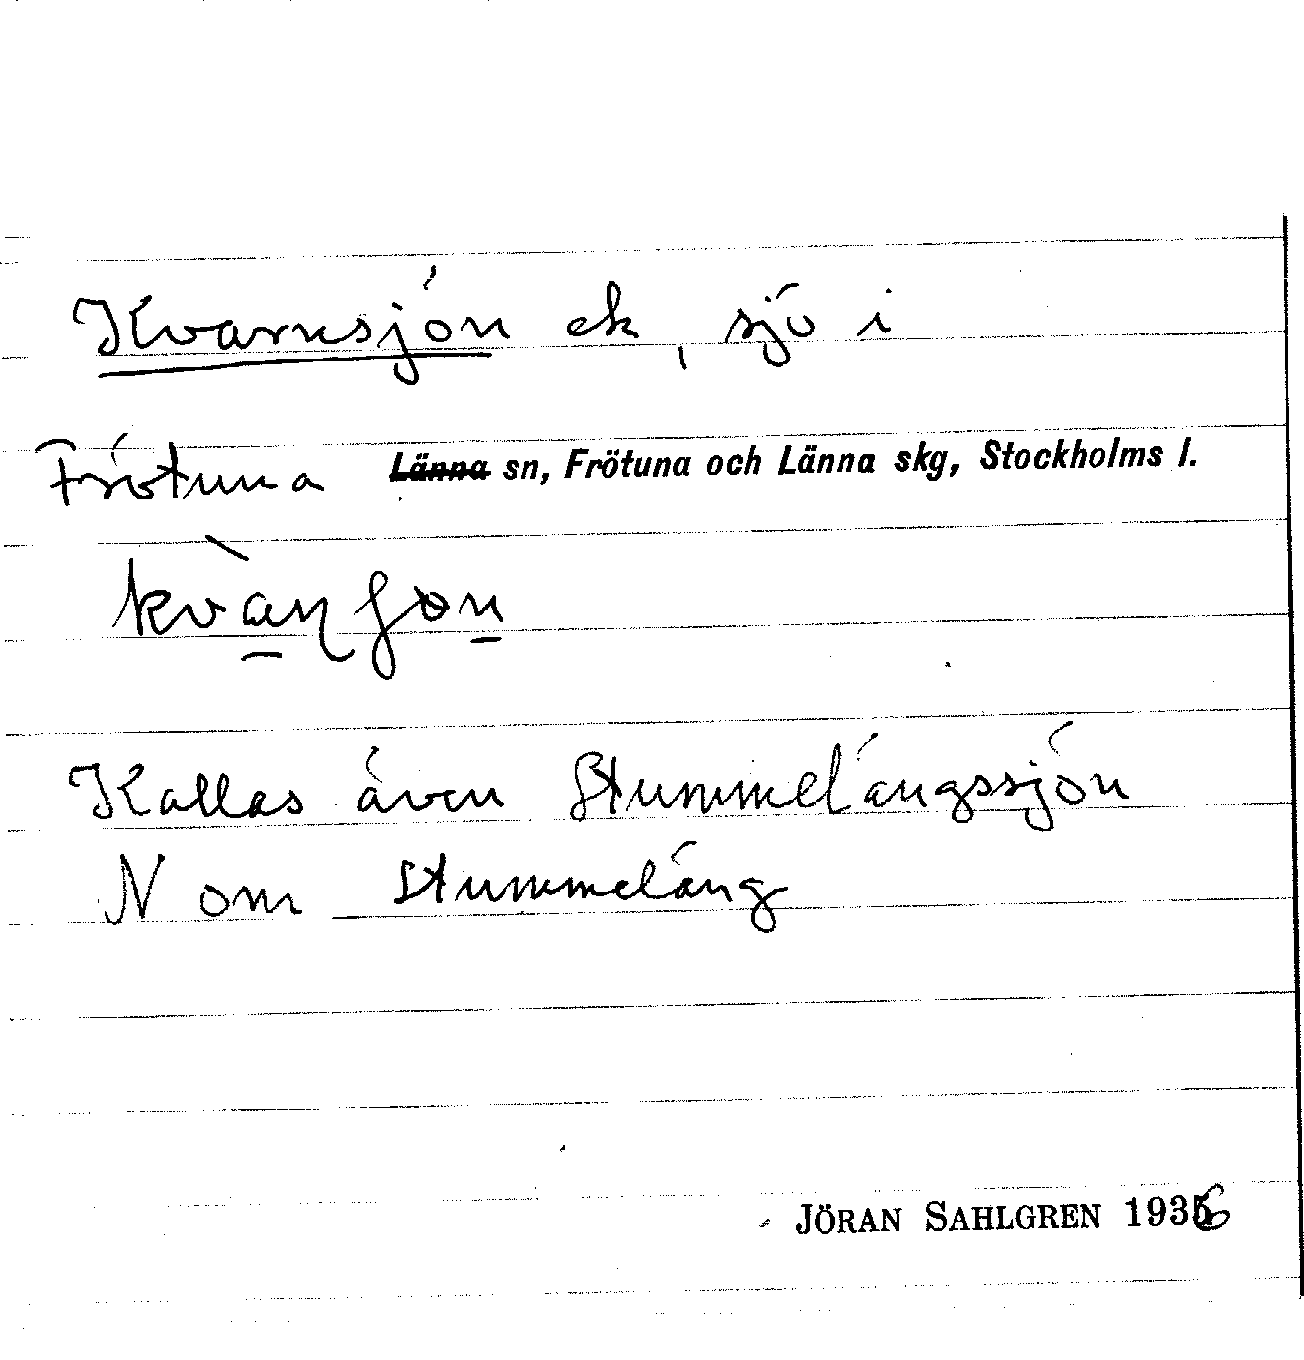 Kvarnsjön ek, sjö i
Frötuna Länna sn, Frötuna och Länna skg, Stockholms l.
Kallas även Stummelängssjön
N om Stummeläng
JÖRAN SAHLGREN 1936